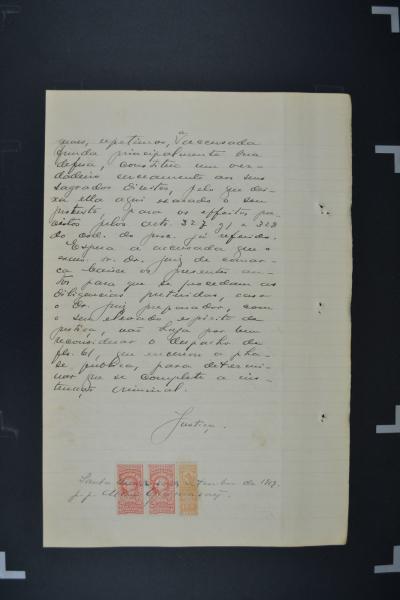 quaes, repetimos, a accusada
funda principalmente sua
defesa, constitue um ver-
dadeiro cerceamento aos seus
sagrados direitos, pelo que dei-
xa ella aqui exarado o seu
protesto, para os effeitos pre-
vistos pelos arts. 327 § 1 e 328
do cod. do proc. já referido.
Espera a accusada que o
exmo. sr. dr. juiz de comar-
ca baixe os presentes au-
tos para que se procedam as
diligencias preteridas, caso
o dr. juiz preparador, com
o seu elevado espirito de
justiça, não haja por bem
reconsiderar o despacho de
fls. 61, que encerrou a pha-
se publica, para determi-
nar que se complete a ins-
trucção criminal.
Justiça.
Santa
de
p.p.